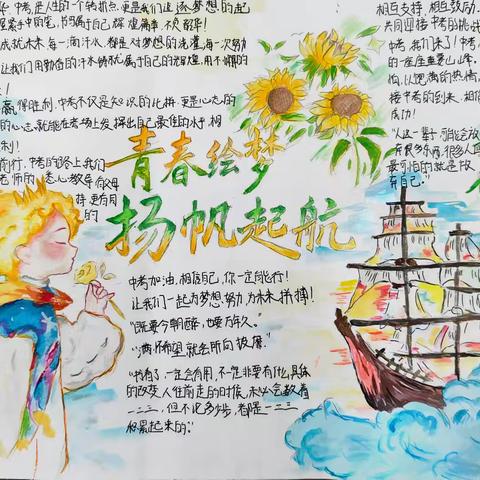 中考是人生的一个转折点,更是我们让逐梦想的起
握紧手中的笔,书写属于自己辉煌篇章,不负韶华!
成就未来,每一滴汗水,都是对梦想的浇灌,每一次努力
让我们用勤奋的汗水铸就属于自己的辉煌,用不懈的
赢得胜利,中考不仅是知识的比拼,更是心态的
的心态,就能在考场上发挥出自己最佳的水平,相
利!
前行,中考的路上,我们
老师的悉心教导,有父母
持,更有同
的
相互支持,相互鼓励,
共同迎接中考的挑战
中考,我们来了!
的一座座重要山峰,
怕,以饱满的热情,
接中考的到来,相信
成功!
"人这一辈子可能会放
弃很多东西,很多人,
最可怕的就是放
弃自己。"
青春绘梦
扬帆起航
中考加油,相信自己,你一定能行!
让我们一起为梦想努力,为未来拼搏!
"既要今朝醉,也要万年久。"
"满怀希望就会所向披靡"
"书看了一定会有用,不一定非要有什么具体
的改变,人往前走的时候,未必会数着
一二三,但不论多少步,都是一二三
积累起来的。"